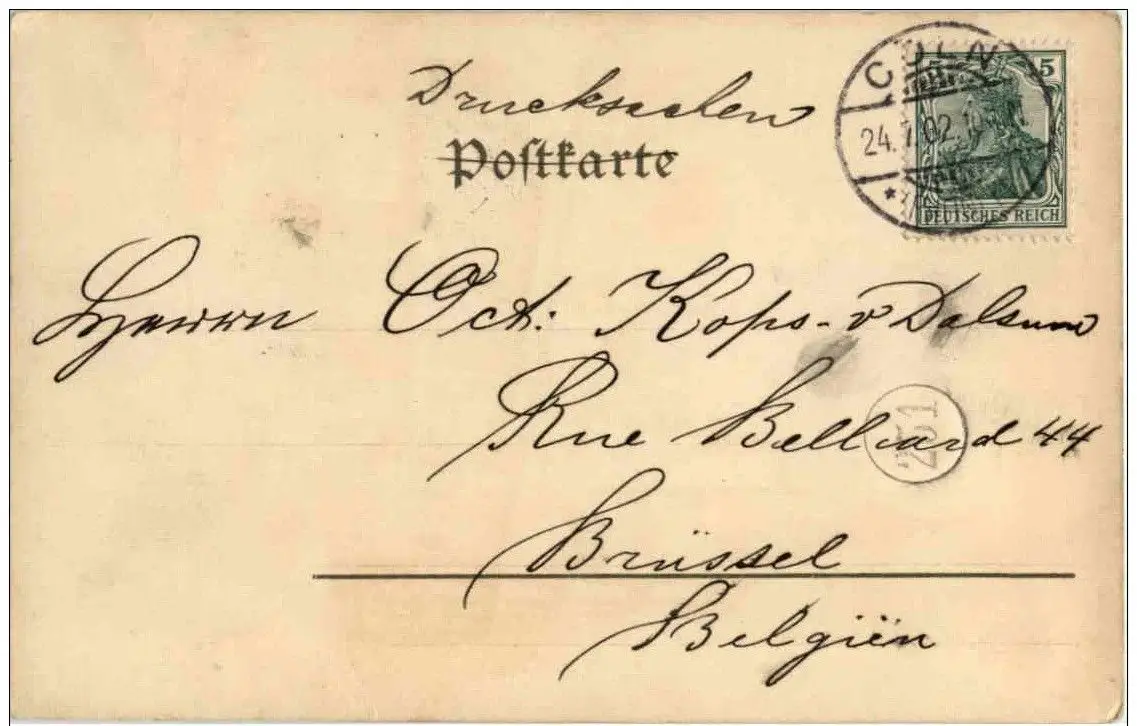 Drucksachen
Postkarte
CÖLN
24.7.02.
5 5
DEUTSCHES REICH
Herrn Oct: Kops-v Dalsum
Rue Belliard 44
251
Brüssel
Belgiën